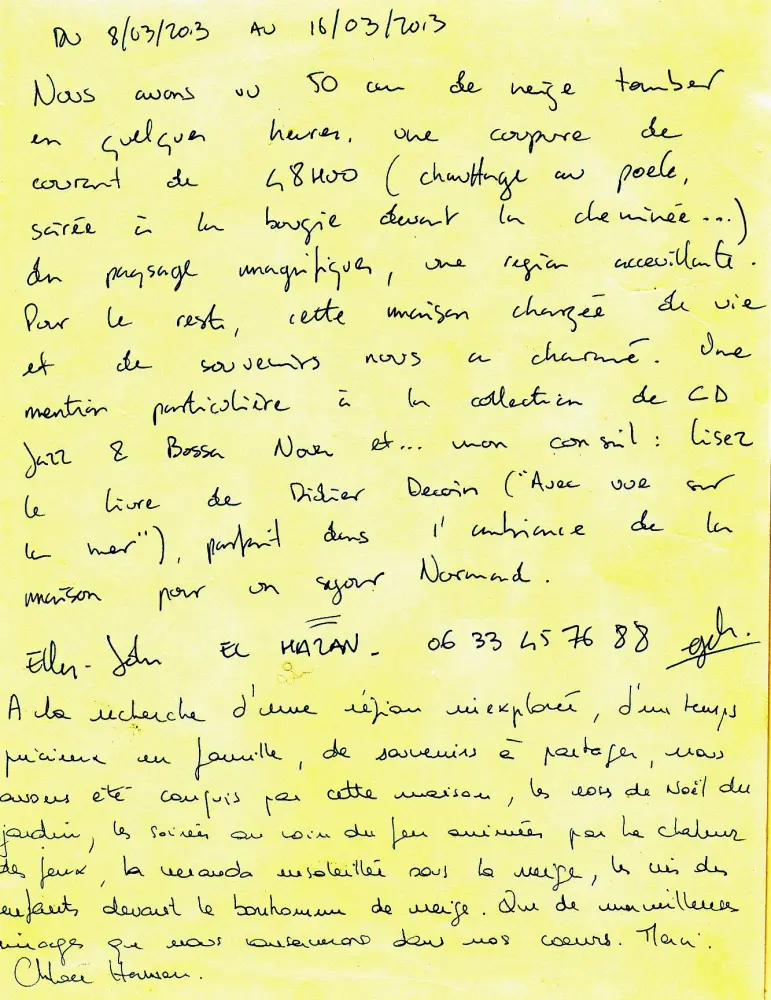 DU 8/03/2013 AU 16/03/2013
Nous avons vu 50 cm de neige tomber
en quelques heures, une coupure de
courant de 48H00 (chauffage au poele,
soirée à la bougie devant la cheminée...)
des paysage magnifiques, une region accueillante.
Pour le reste, cette maison chargée de vie
et de souvenirs nous a charmé. Une
mention particulière à la collection de CD
Jazz & Bossa Nova et... mon conseil : lisez
le livre de Didier Decoin ("Avec vue sur
la mer"), parfait dans l'ambiance de la
maison pour un séjour Normand.
John EL HAZAN - 06 33 45 76 88
A la recherche d'une région inexplorée, d'un temps
précieux en famille, de souvenirs à partager, nous
avons été conquis par cette maison, les de Noël du
jardin, les soirées au coin du feu animées par la chaleur
des jeux, la veranda ensoleillée sous la neige, les cris des
enfants devant le bonhomme de neige. Que de merveilleuses
images que nous conserverons dans nos coeurs. Merci.
Chloé